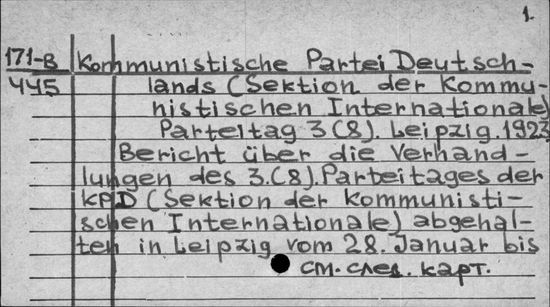 1.
171-В Kommunistische Partei Deutsch-
445 lands (Sektion der Kommu-
nistischen Internationale)
Parteitag 3(8). Leipzig. 1923
Bericht über die Verhand-
lungen des 3.(8). Parteitages der
KPD (Sektion der Kommunisti-
schen Internationale) abgehal-
ten in Leipzig vom 28. Januar bis
см. след. карт.